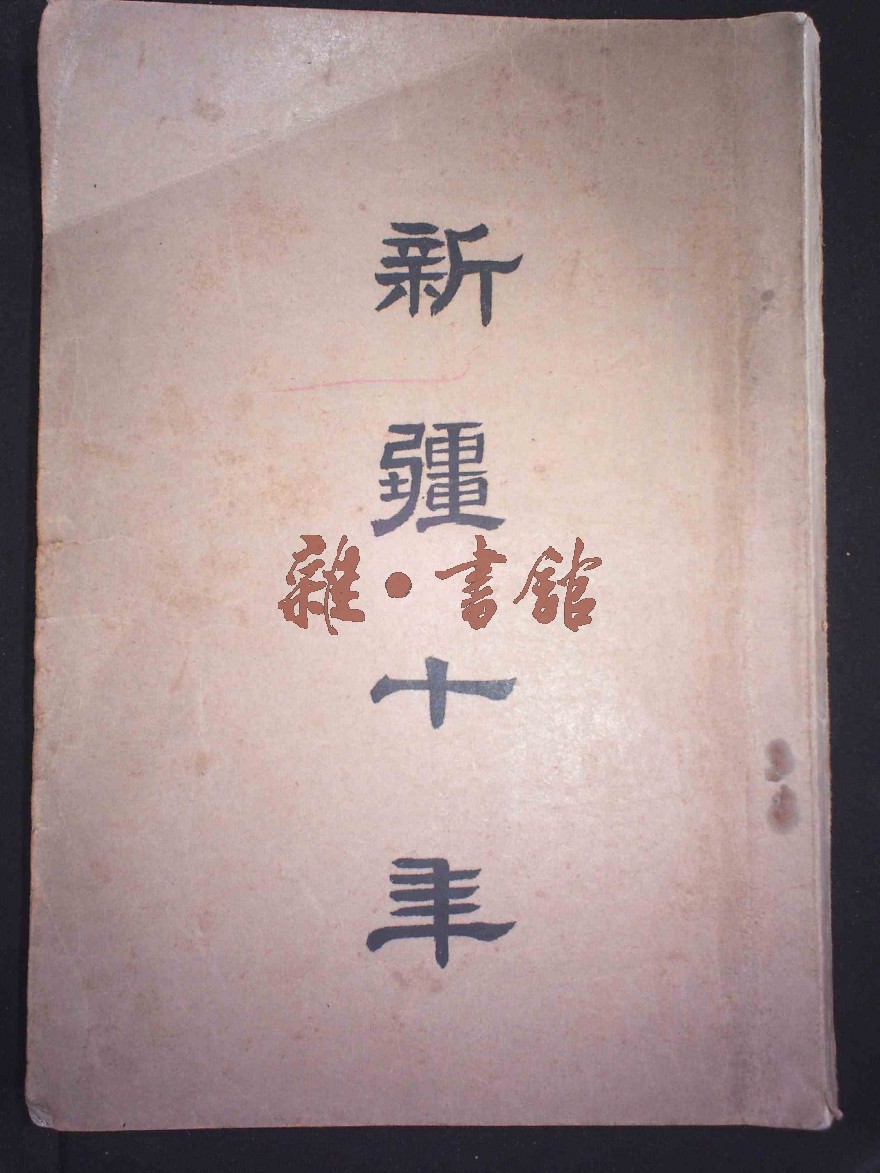 新疆十年
雜·書館